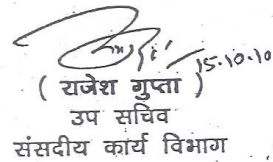 15.10.10
( राजेश गुप्ता )
उप सचिव
संसदीय कार्य विभाग